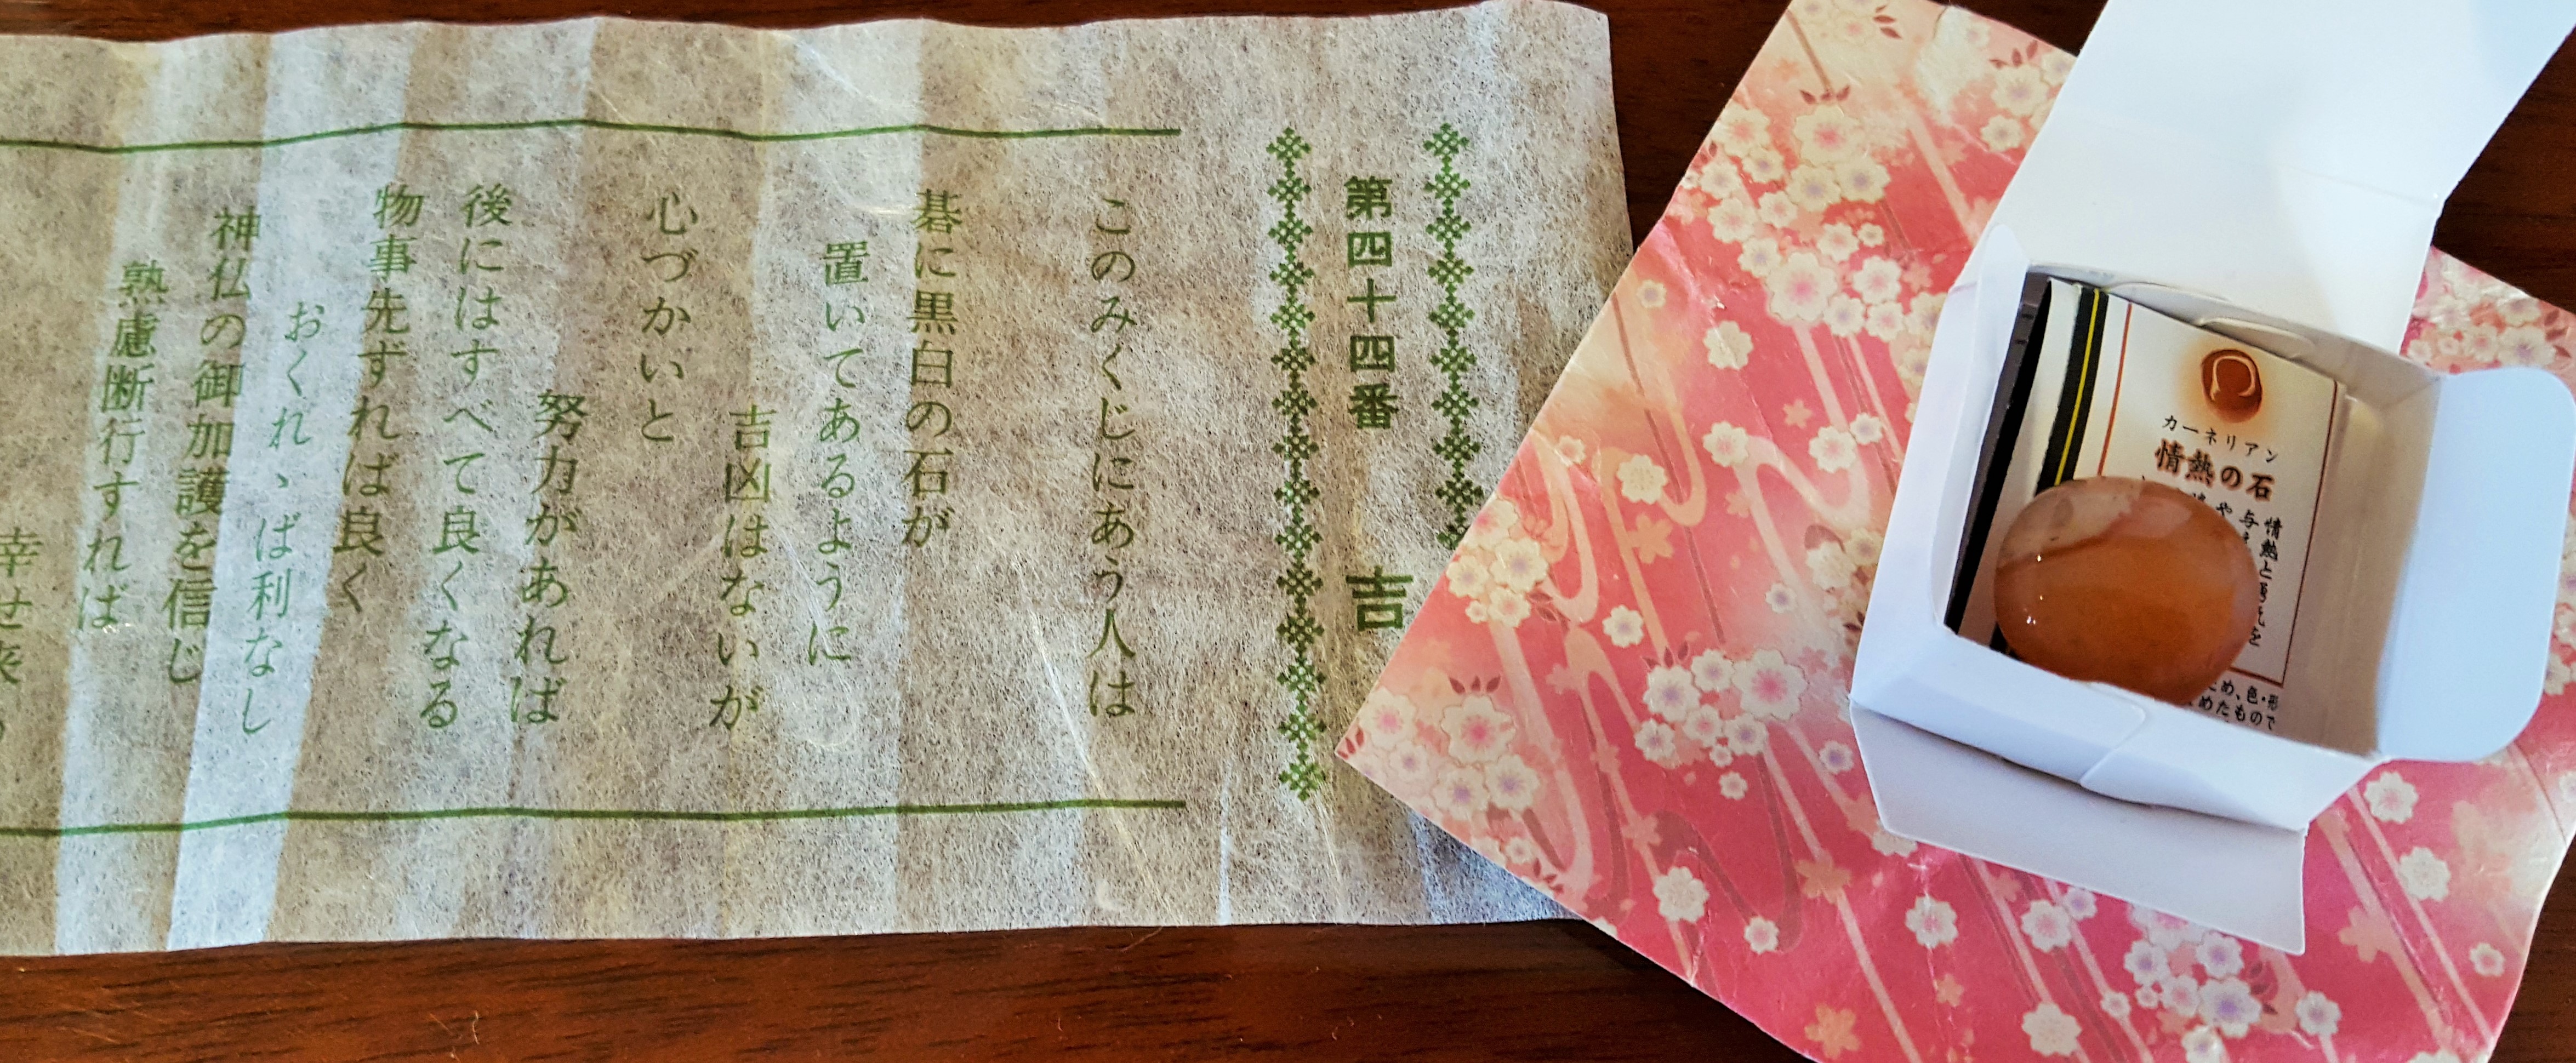 第四十四番 吉
このみくじにあう人は
碁に黒白の石が
置いてあるように
吉凶はないが
心づかいと
努力があれば
後にはすべて良くなる
物事先ずれば良く
おくれゝば利なし
神仏の御加護を信じ
熟慮断行すれば
幸せ来
カーネリアン
情熱の石
情熱と勇気を
与え
や
め、色・形
めたもので